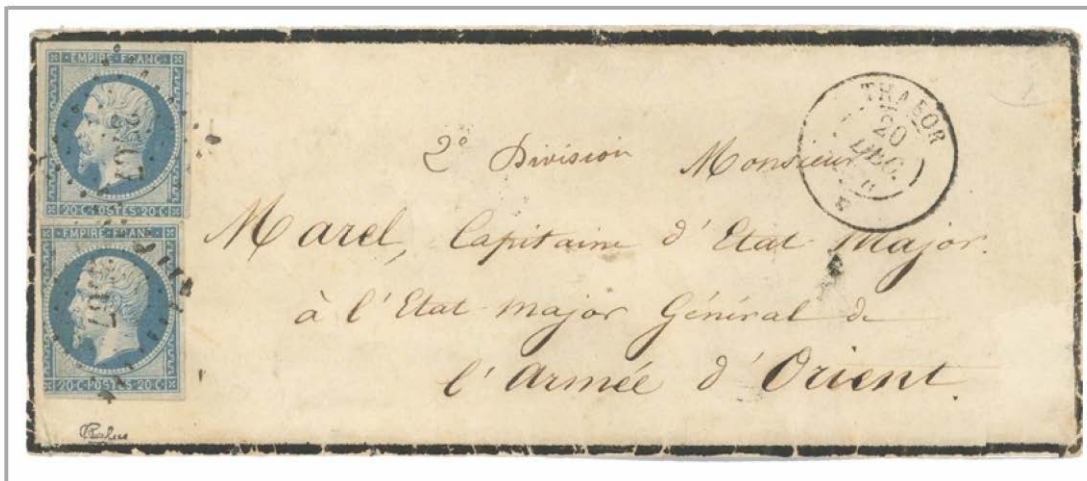 EMPIRE FRANC
20 C POSTES 20 C
EMPIRE FRANC
20 C POSTES 20 C
THABOR
20
DEC.
2e Division Monsieur
Marel, Capitaine d'Etat Major.
à l'Etat major Général de
l'Armée d'Orient